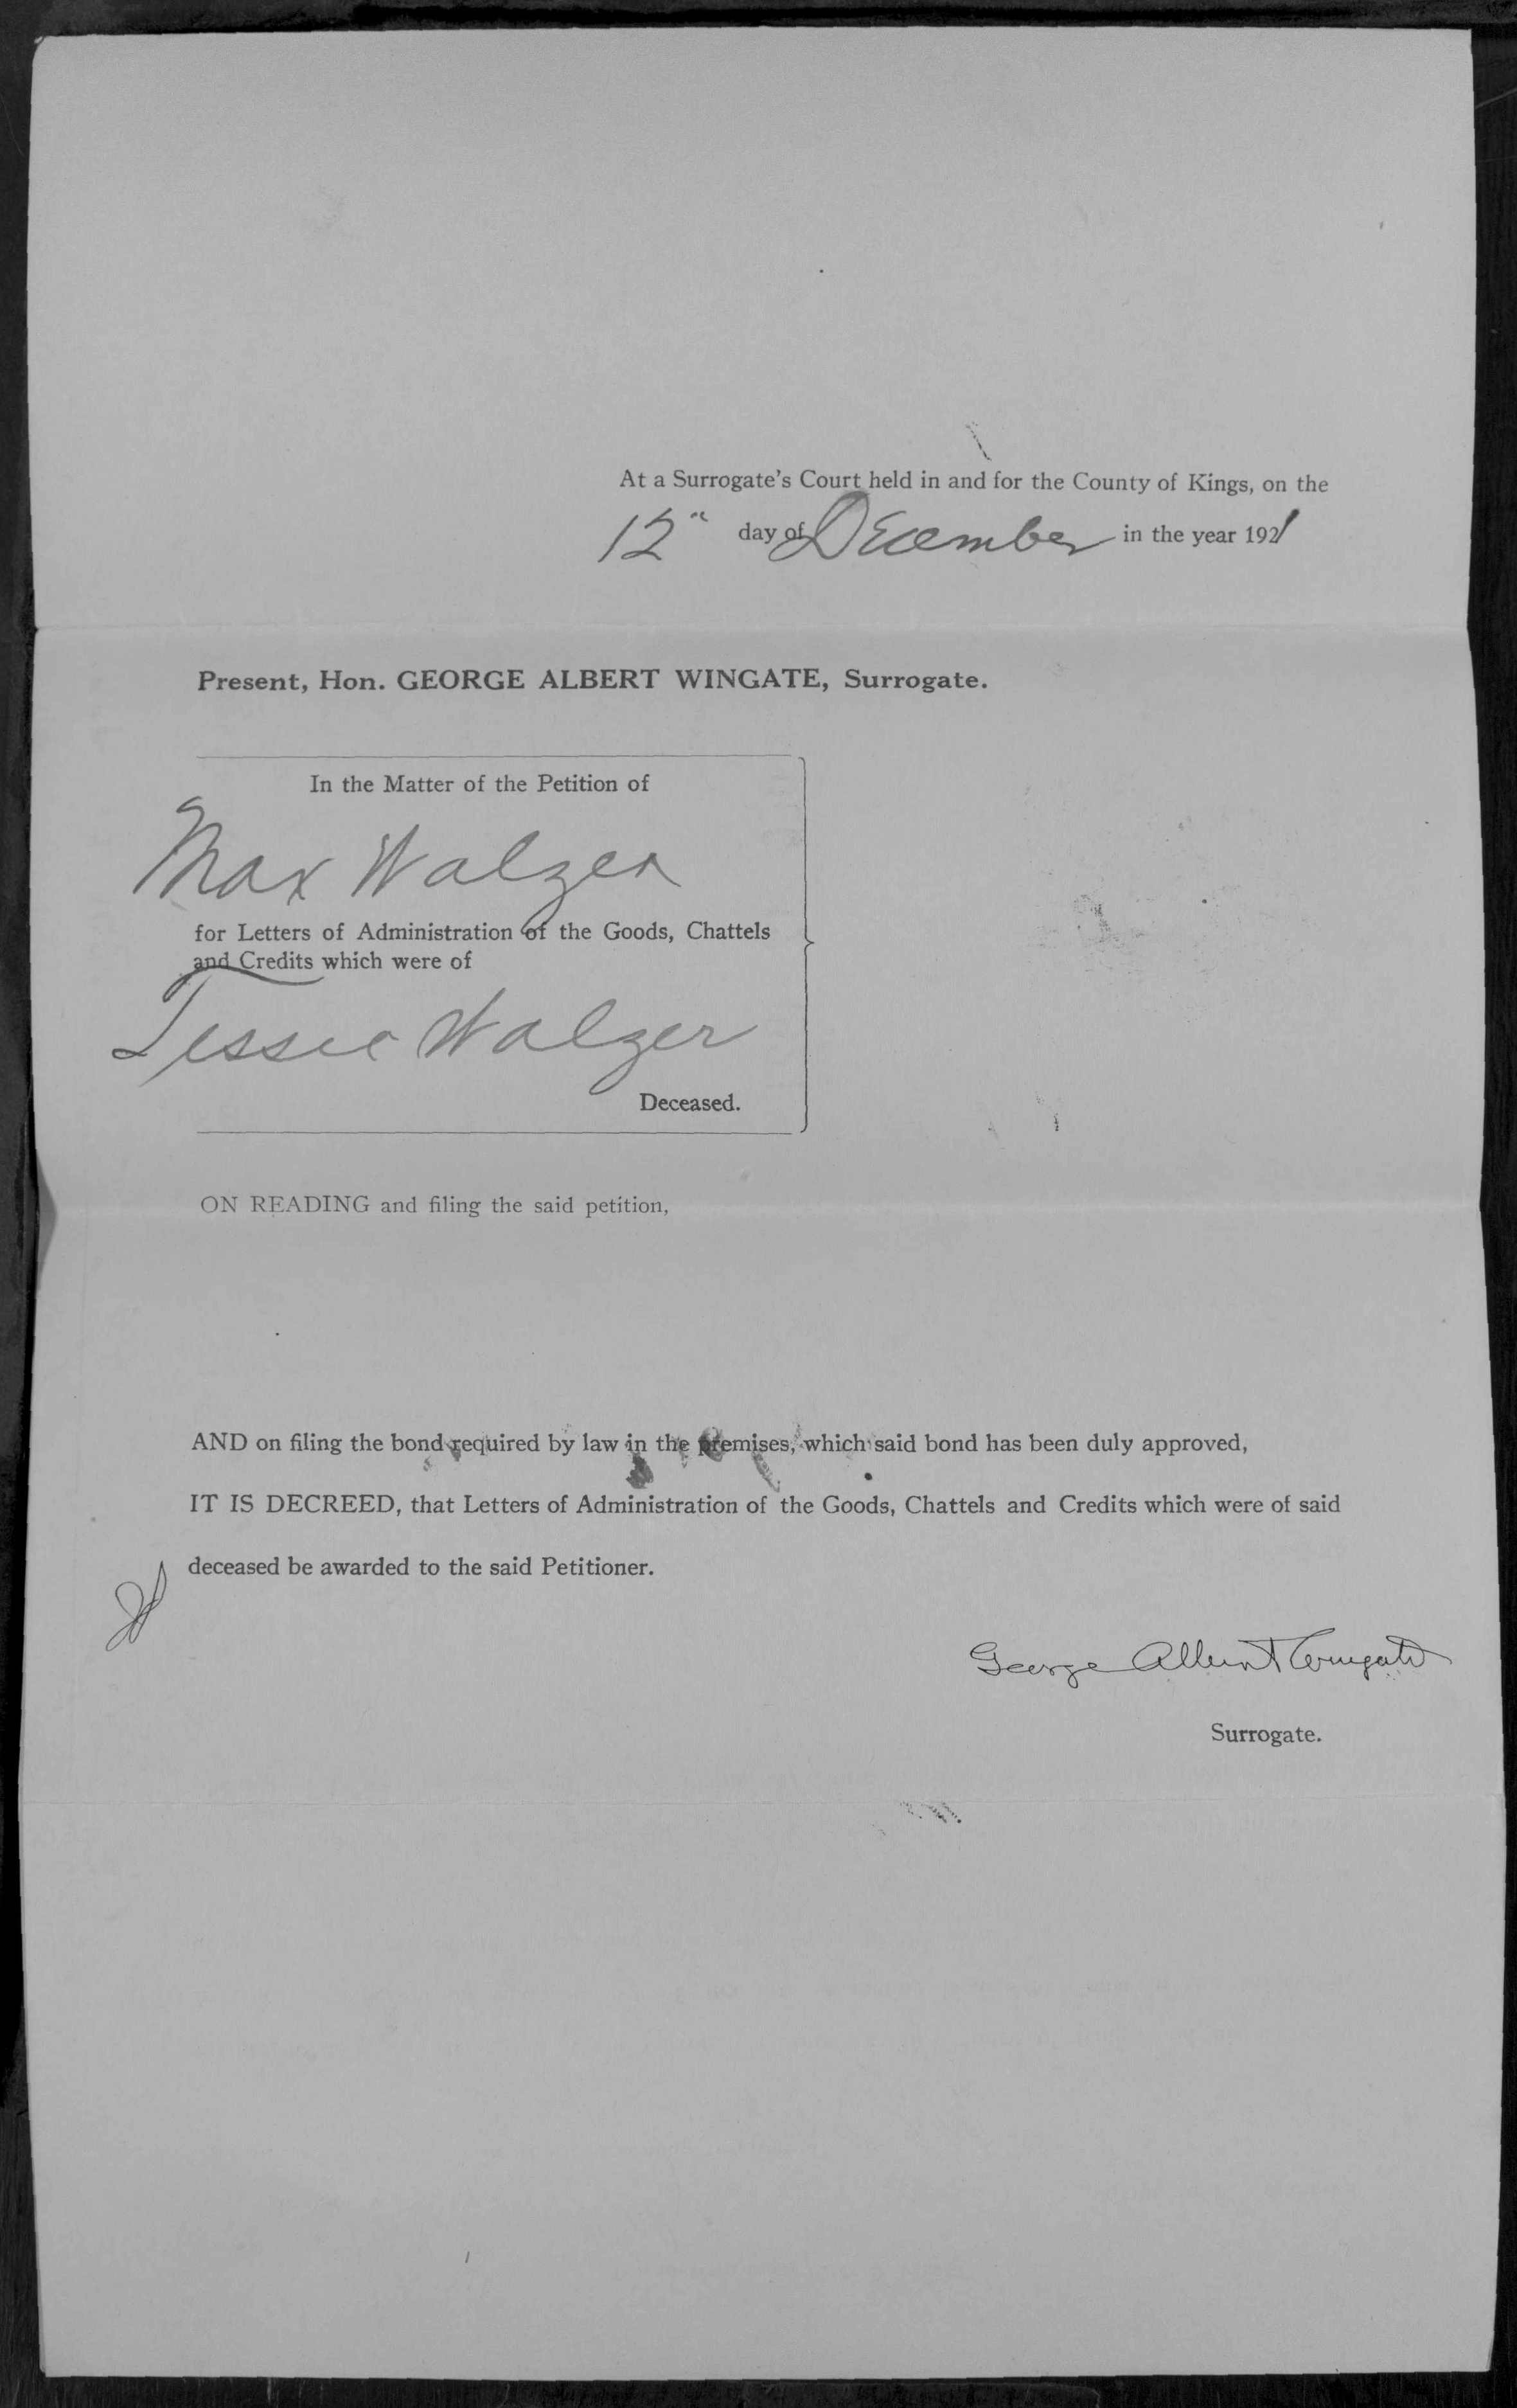 At a Surrogate's Court held in and for the County of Kings, on the
12" day of December in the year 1921
Present, Hon. GEORGE ALBERT WINGATE, Surrogate.
In the Matter of the Petition of
Max Walzer
for Letters of Administration of the Goods, Chattels
and Credits which were of
Tessie Walzer
Deceased.
ON READING and filing the said petition,
AND on filing the bond required by law in the premises, which said bond has been duly approved,
IT IS DECREED, that Letters of Administration of the Goods, Chattels and Credits which were of said
deceased be awarded to the said Petitioner.
George Albert Wingate
Surrogate.